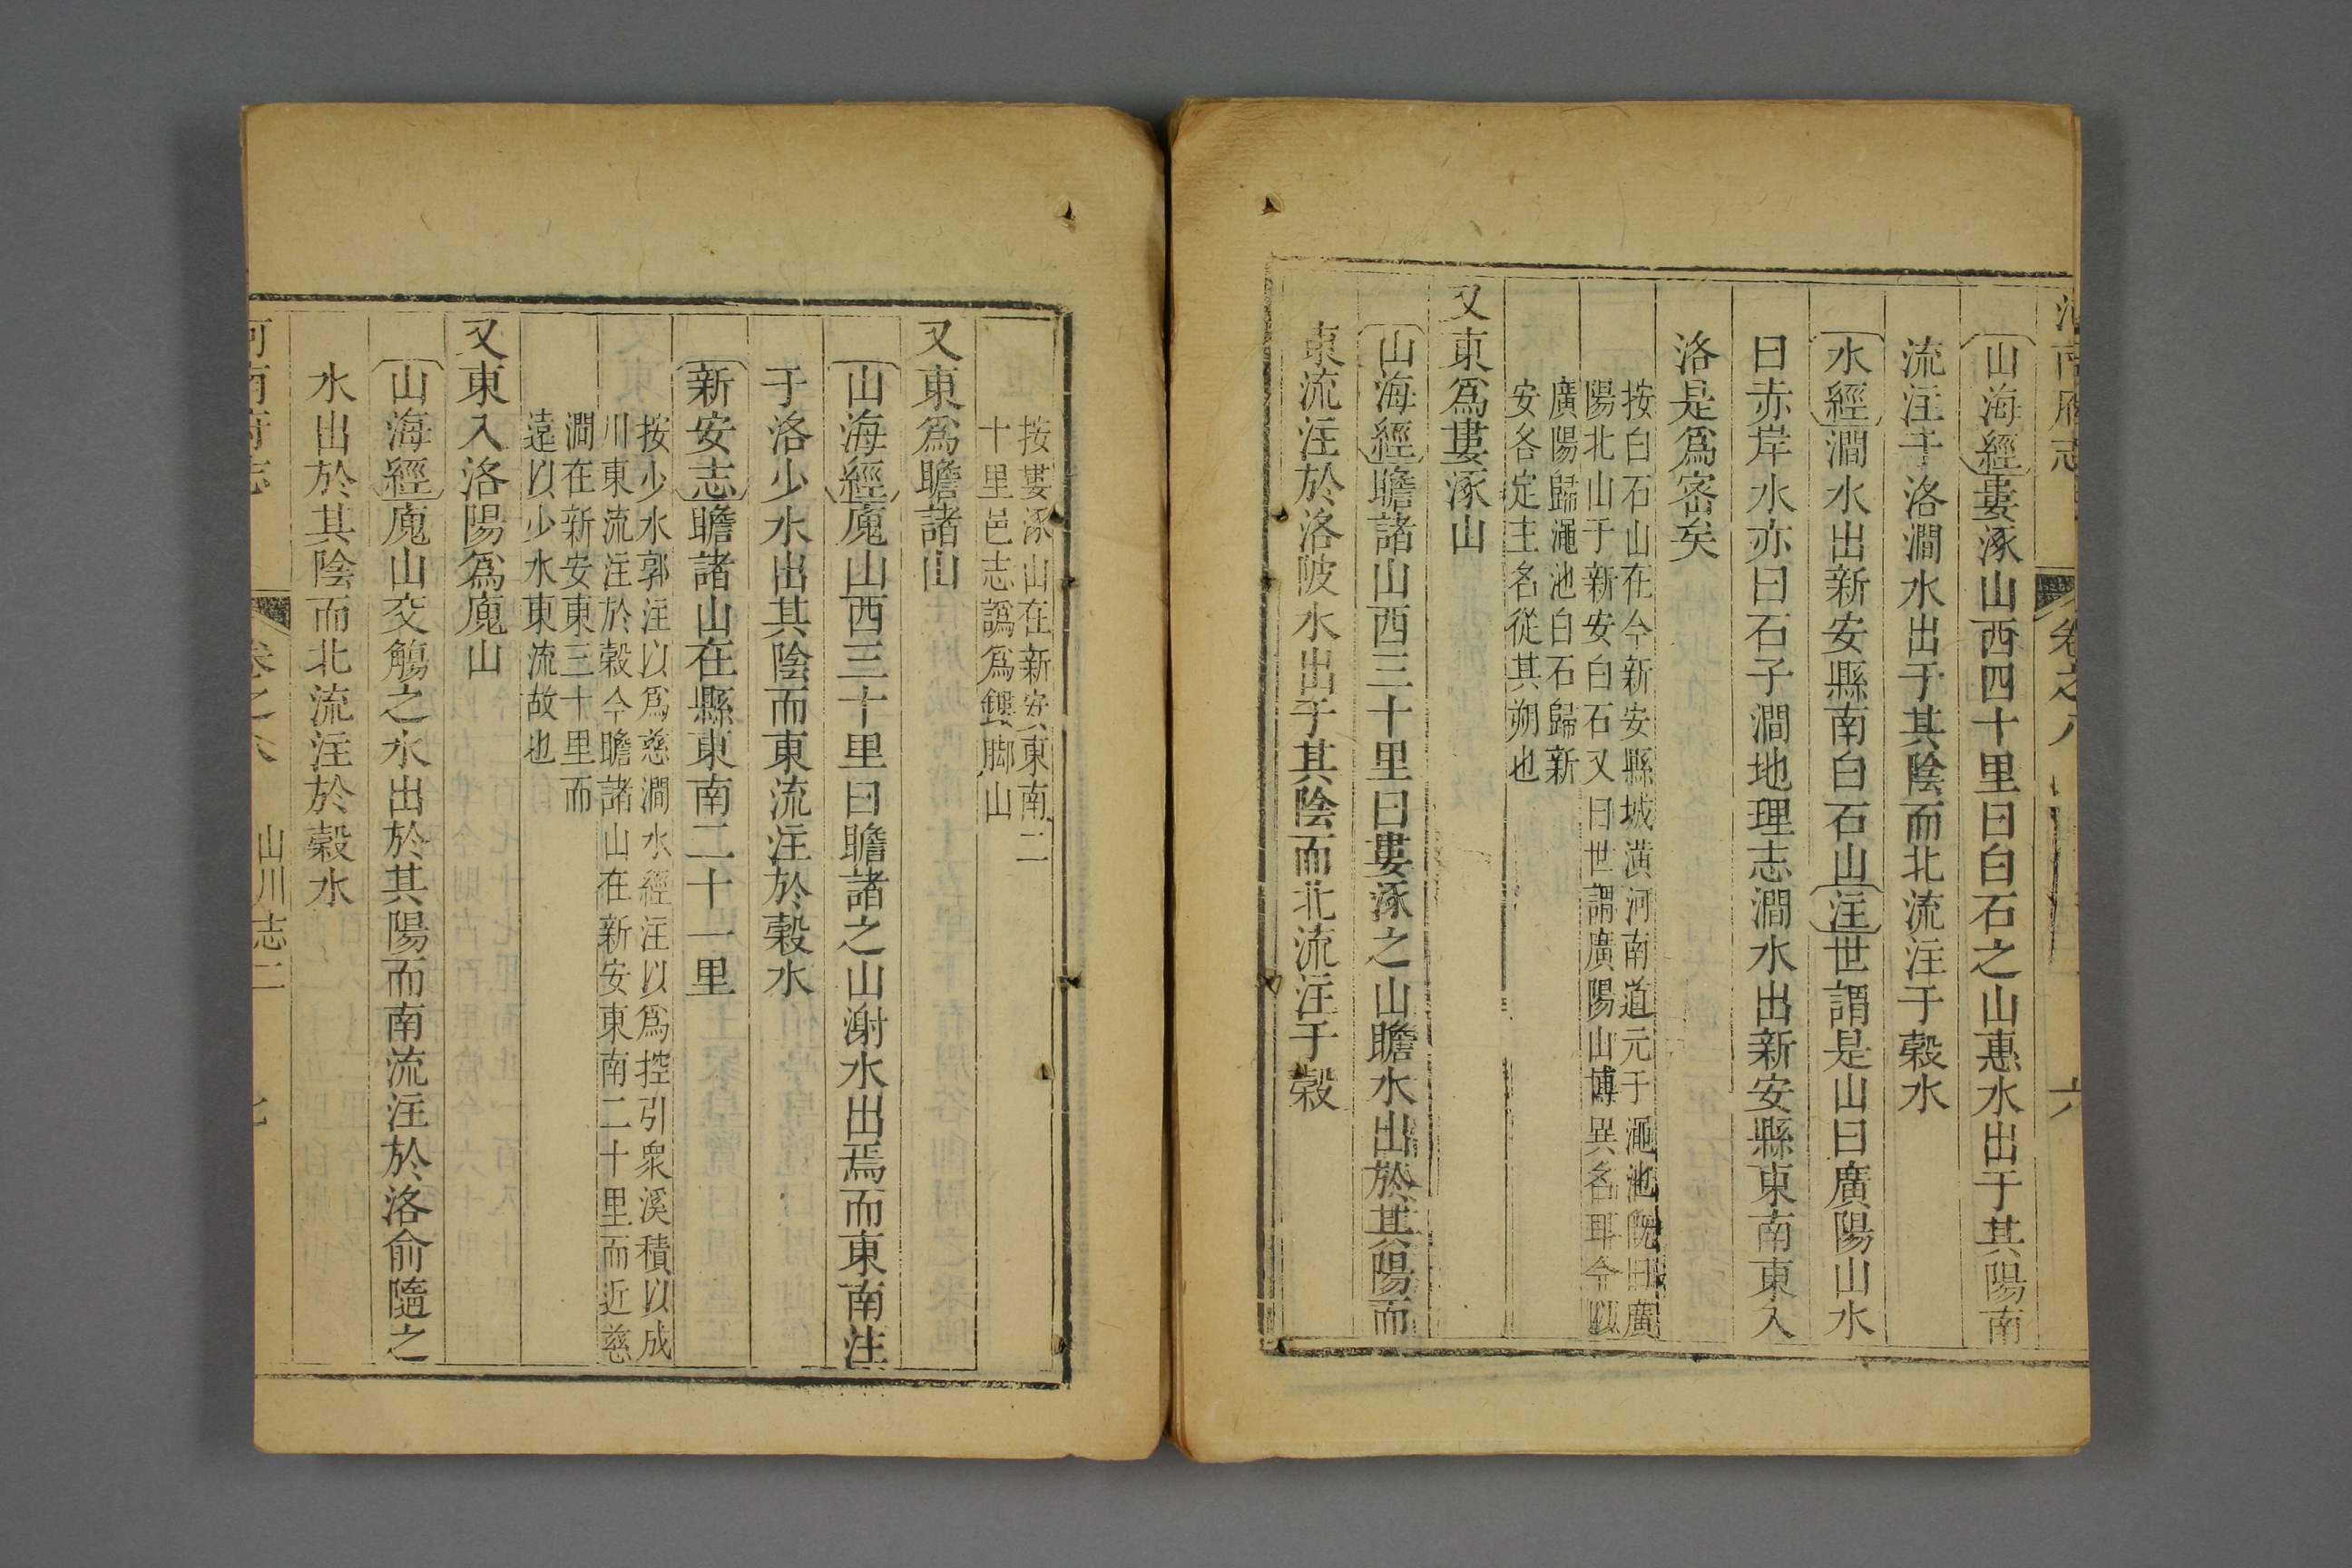 河南府志 卷之八 六
山海經婁涿山西四十里曰白石之山惠水出于其陽南
流注于洛澗水出于其陰而北流注于穀水
水經澗水出新安縣南白石山注世謂是山曰廣陽山水
曰赤岸水亦曰石子澗地理志澗水出新安縣東南東入
洛是爲密矣
按白石山在今新安縣城潢河南道元于澠池旣曰廣
陽北山于新安白石又曰世謂廣陽山博異名耳今以
廣陽歸澠池白石歸新
安各定主名從其朔也
又東爲婁涿山
山海經瞻諸山西三十里曰婁涿之山瞻水出於其陽而
東流注於洛陂水出于其陰而北流注于穀
按婁涿山在新安東南二
十里邑志譌爲鏍脚山
又東爲瞻諸山
山海經廆山西三十里曰瞻諸之山㴬水出焉而東南注
于洛少水出其陰而東流注於穀水
新安志瞻諸山在縣東南二十一里
按少水郭注以爲慈澗水經注以爲控引衆溪積以成
川東流注於穀今瞻諸山在新安東南二十里而近慈
澗在新安東三十里而
遠以少水東流故也
又東入洛陽爲廆山
山海經廆山交觴之水出於其陽而南流注於洛俞隨之
水出於其陰而北流注於穀水
河南府志 卷之八 山川志二 七